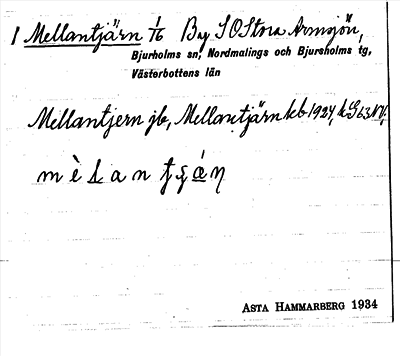 1 Mellantjärn 1/16 By S O Stora Armsjön,
Bjurholms sn, Nordmalings och Bjurholms tg,
Västerbottens län
Mellantjern jb, Mellantjärn kb 1924, k G 63 NV.
Asta Hammarberg 1934